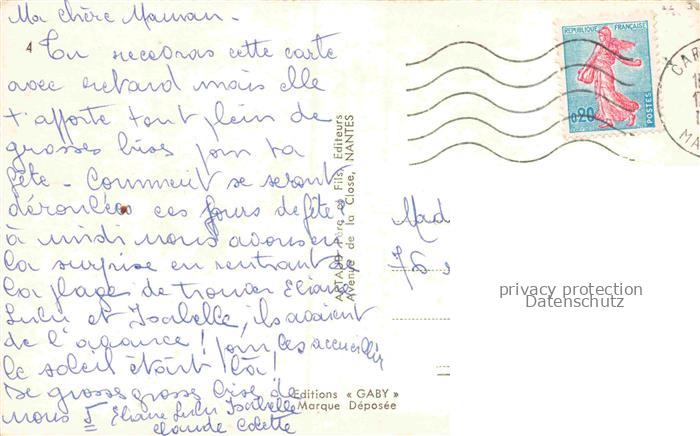 Ma chère Maman -
4
Tu recevras cette carte
avec retard mais elle
t'apporte tout plein de
grosses bises pour ta
fête - Comment se seront
déroulées ces jours de fête
à midi nous avons eu
la surprise en rentrant de
la plage de trouver Eliane
Lulu et Isabelle, ils avaient
de l'avance! pour les accueillir
le soleil était là!
De grosses grosses bises de
nous 5 Eliane Lulu Isabelle
Claude Colette
ARTAUD Père et Fils, Editeurs
Avenue de la Close, NANTES
Editions « GABY »
Marque Déposée
REPUBLIQUE FRANÇAISE
0,20
POSTES
CAR
MA
Mad
76
privacy protection
Datenschutz